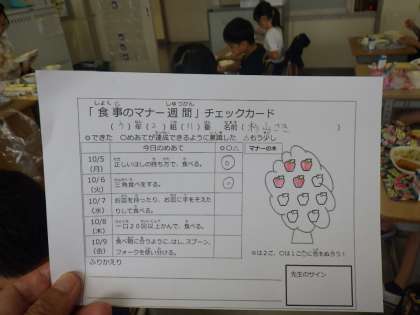 「食事のマナー週間」チェックカード
年 組 番 名前
◎できた ○めあてが達成できるように意識した △もう少し
今日のめあて ◎○△ マナーの木
10/5(月) 正しいはしの持ち方で、食べる。 ◎
10/6(火) 三角食べをする。 ○
10/7(水) お皿を持ったり、お皿に手をそえたりして食べる。
10/8(木) 一口20回以上かんで、食べる。
10/9(金) 食べ物に合うように、はし、スプーン、フォークを使い分ける。
ふりかえり
◎は2こ、○は1こに色をぬろう!
先生のサイン